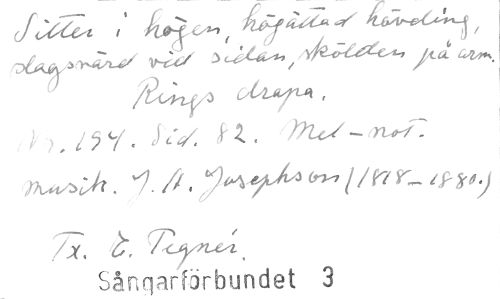 Sitter i högen, högättad hövding,
slagsvärd vid sidan, skölden på arm.
Rings drapa.
Nr. 194. Sid. 82. Mel-not.
musik. J. A. Josephson (1818-1880.)
Tx. E. Tegnér.
Sångarförbundet 3